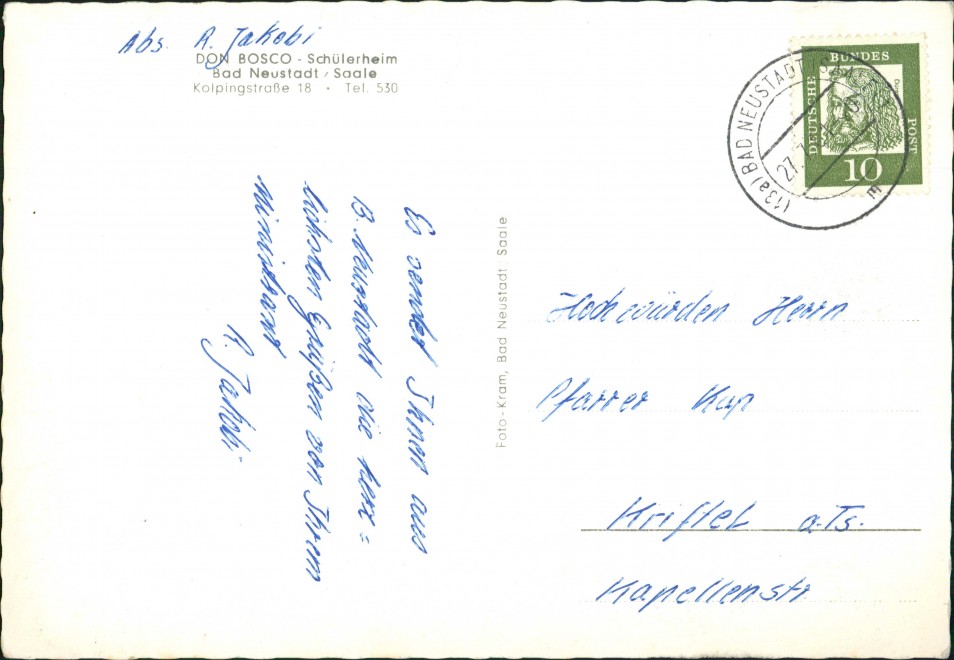 Abs. R. Jakobi
DON BOSCO - Schülerheim
Bad Neustadt / Saale
Kolpingstraße 18 • Tel. 530
Es sendet Ihnen aus
B. Neustadt die herz=
lichsten Grüßen von Ihrem
Ministrant
R. Jakobi
Foto-Kram, Bad Neustadt Saale
DEUTSCHE BUNDES POST
10
(13a) BAD NEUSTADT
27.
E
Hochwürden Herrn
Pfarrer Kup
Kriftel a.Ts.
Kapellenstr